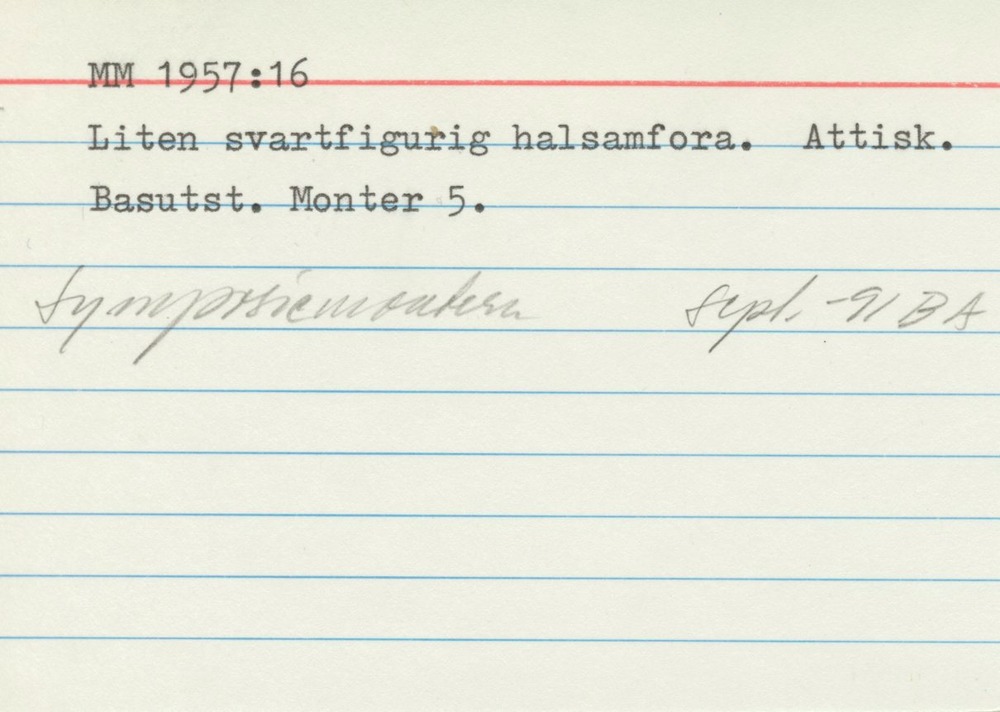 MM 1957:16
Liten svartfigurig halsamfora. Attisk.
Basutst. Monter 5.
Symposiemontern Sept. -91 BA